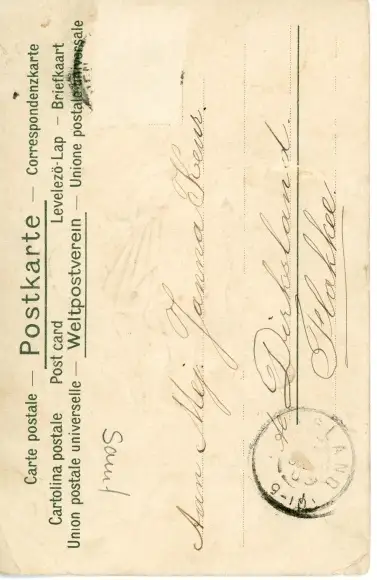 Carte postale — Postkarte — Correspondenzkarte
Cartolina postale Post card Levelező-Lap — Briefkaart
Union postale universelle — Weltpostverein — Unione postale universale
Aan Mej. Janna Keur.
Dirksland
Flakkee.
LAND